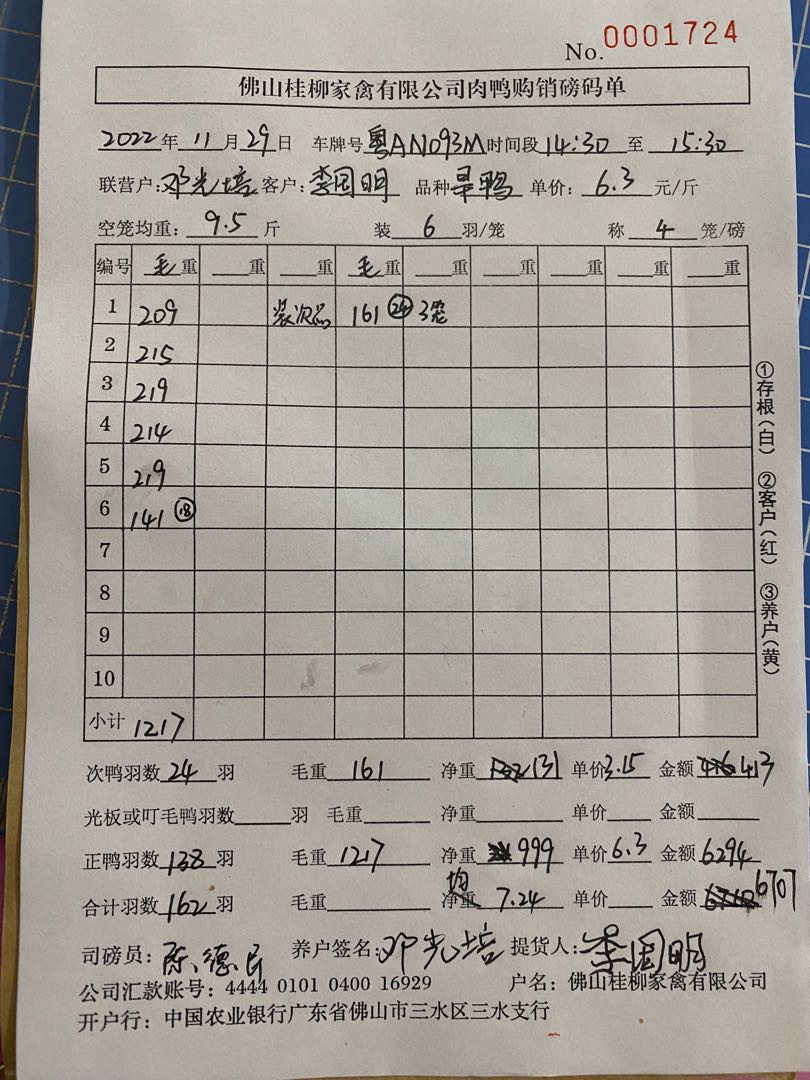 No. 0001724
佛山桂柳家禽有限公司肉鸭购销磅码单
2022年 11月29日 车牌号粤AN093M时间段14:30 至 15:30
联营户:邓光培客户:李国明 品种旱鸭 单价: 6.3 元/斤
空笼均重: 9.5 斤 装 6 羽/笼 称 4 笼/磅
编号 毛重 重 重 毛重 重 重 重 重 重
1 209 装次品 161 24 3笼
2 215
3 219
4 214
5 219
6 141 18
7
8
9
10
小计 1217
次鸭羽数 24 羽 毛重 161 净重 131 单价3.15 金额 413
光板或叮毛鸭羽数 羽 毛重 净重 单价 金额
正鸭羽数 138 羽 毛重 1217 净重 999 单价 6.3 金额 6294
合计羽数 162 羽 毛重 均重 7.24 单价 金额 6707
司磅员: 陈德民 养户签名:邓光培 提货人:李国明
公司汇款账号: 4444 0101 0400 16929 户名: 佛山桂柳家禽有限公司
开户行: 中国农业银行广东省佛山市三水区三水支行
①存根(白) ②客户(红) ③养户(黄)